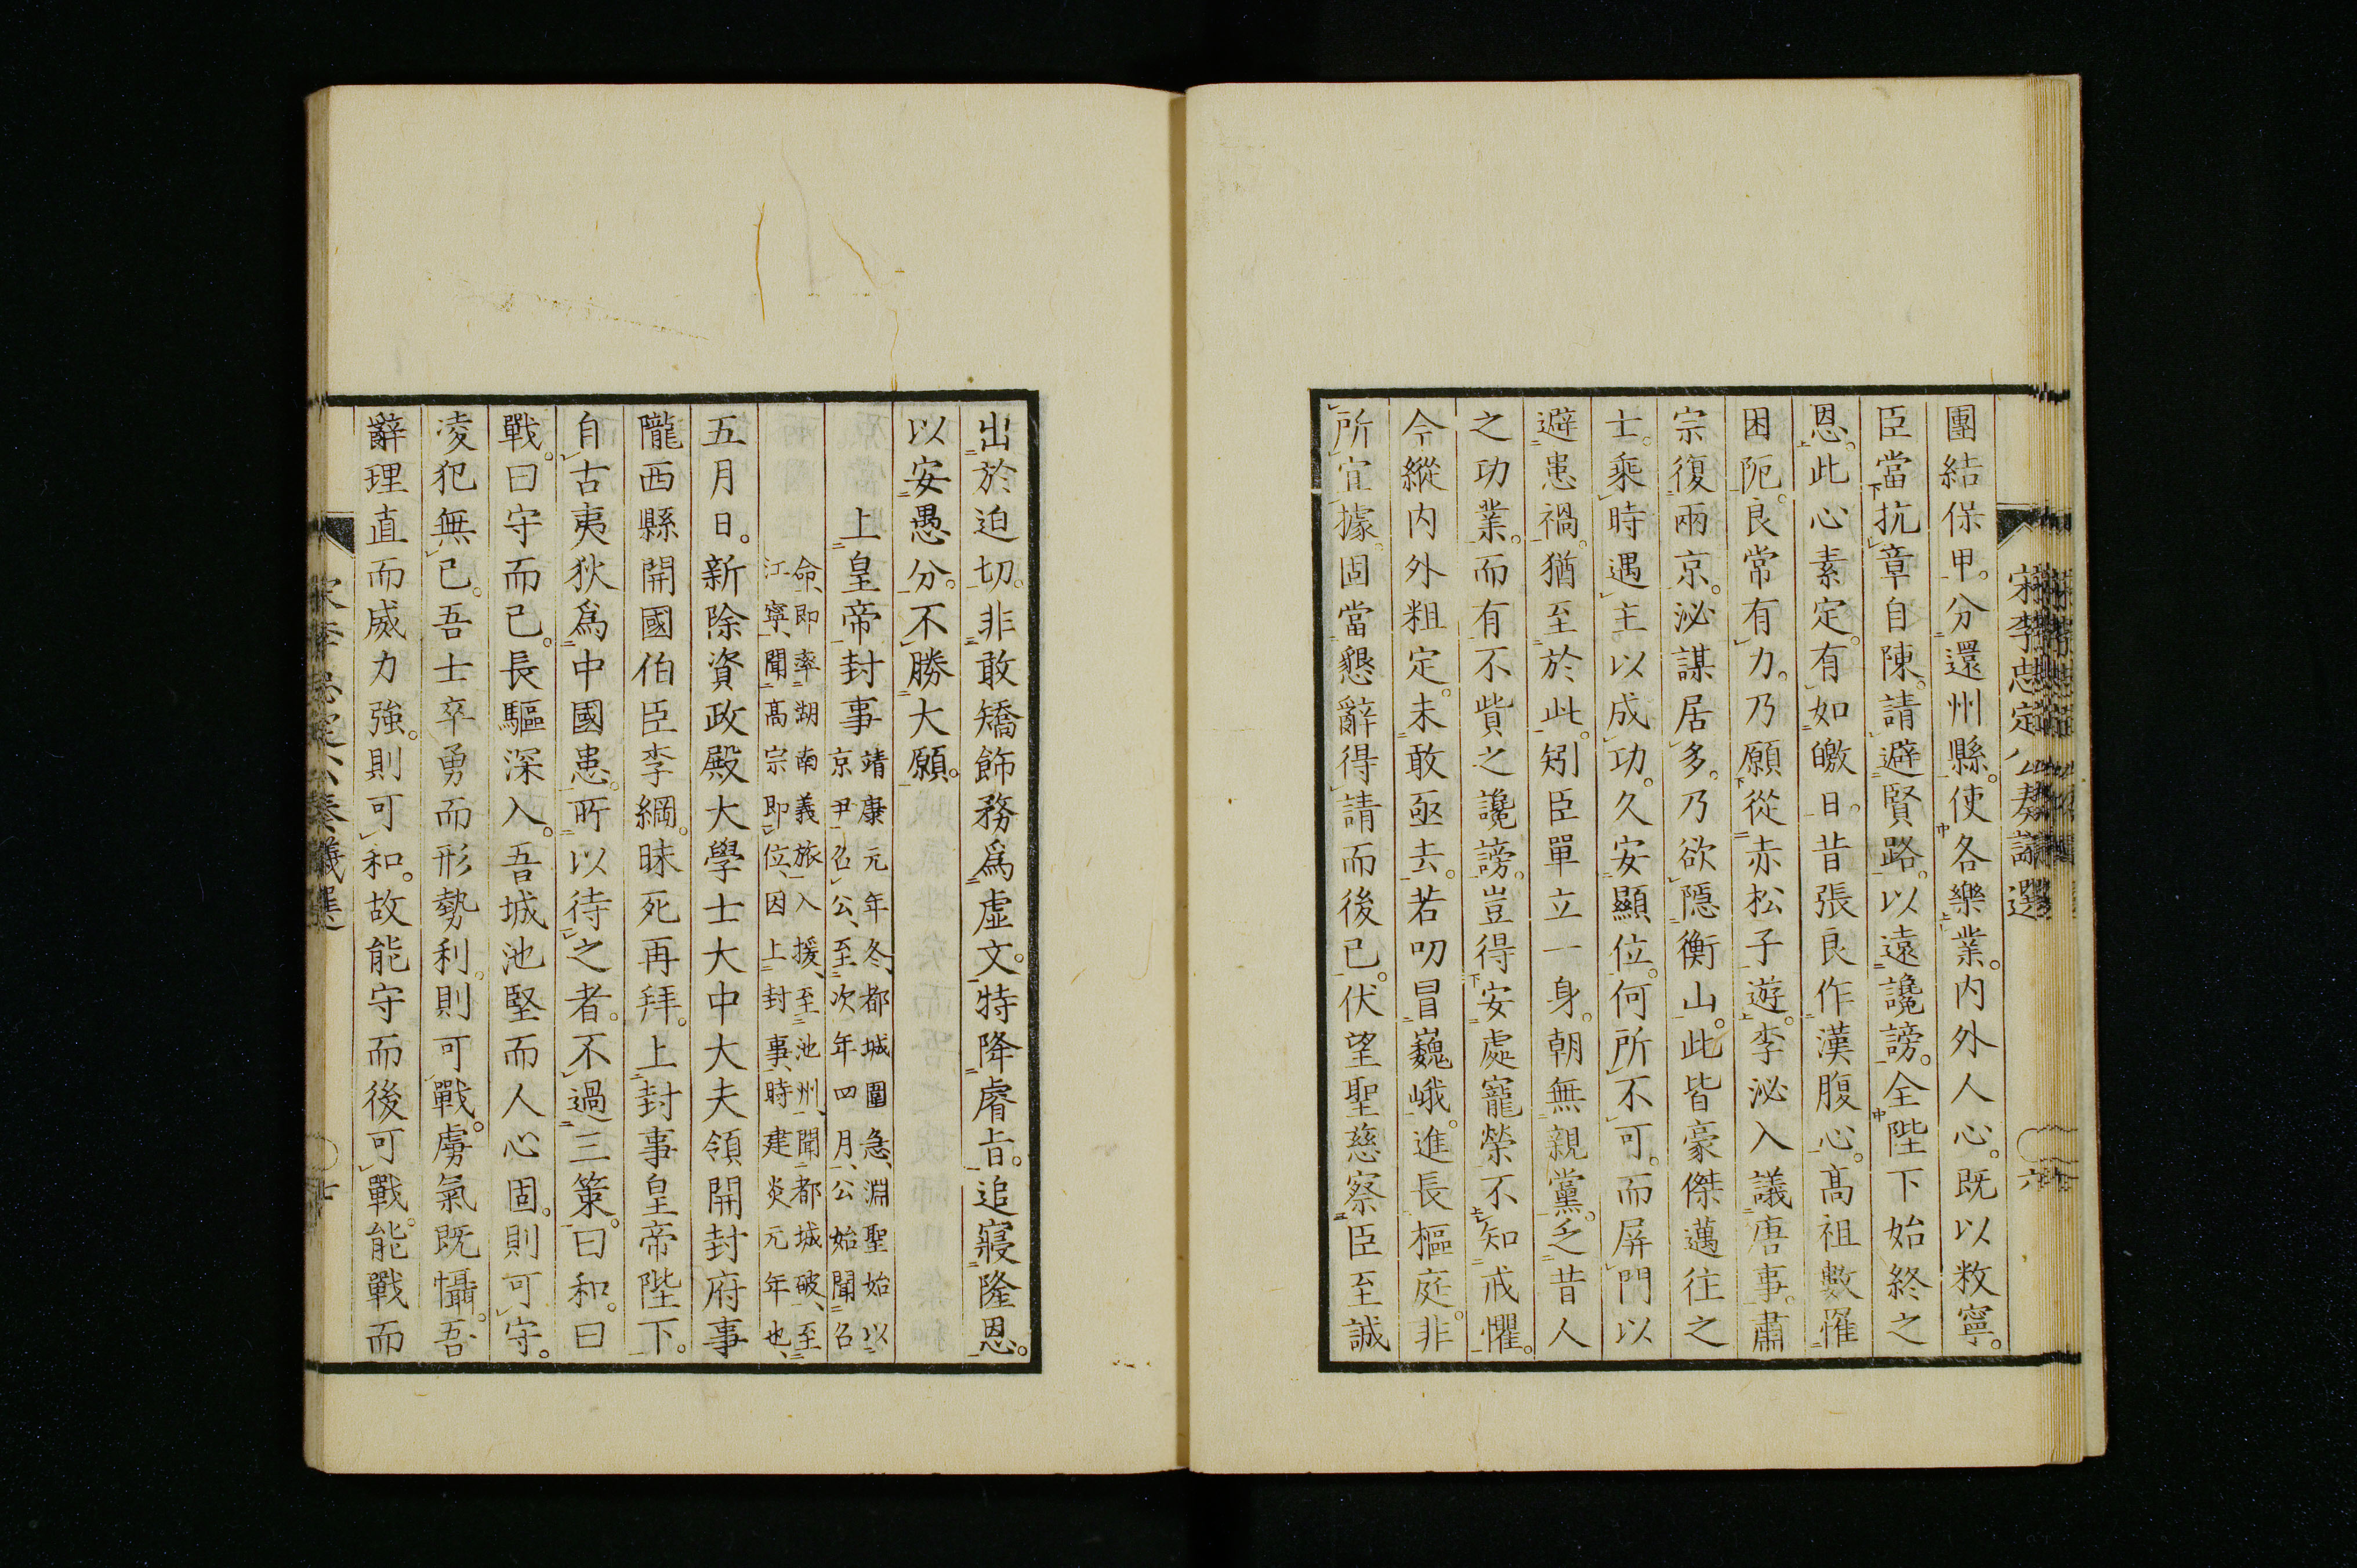 宋李忠定公奏議選
六
團結保甲。分還州縣。使各樂業。内外人心。既以敉寧。
臣當抗章自陳。請避賢路。以遠讒謗。全陛下始終之
恩。此心素定。有如皦日。昔張良作漢腹心。髙祖數罹
困阨。良常有力。乃願從赤松子遊。李泌入議唐事。肅
宗復兩京。泌謀居多。乃欲隱衡山。此皆豪傑邁往之
士。乘時遇主以成功。久安顯位。何所不可。而屏門以
避患禍。猶至於此。矧臣單立一身。朝無親黨。乏昔人
之功業。而有不貲之讒謗。豈得安處寵榮不知戒懼。
今縱内外粗定。未敢亟去。若叨冒巍峨。進長樞庭。非
所宜據。固當懇辭得請而後已。伏望聖慈察臣至誠
出於迫切。非敢矯飾務爲虚文。特降睿旨。追寢隆恩。
以安愚分。不勝大願。
上皇帝封事
靖康元年冬、都城圍急、淵聖始以
京尹召公、至次年四月、公始聞召
命、即率湖南義旅入援、至池州、聞都城破、至
江寧、聞髙宗即位、因上封事、時建炎元年也、
五月日。新除資政殿大學士大中大夫領開封府事
隴西縣開國伯臣李綱。昧死再拜。上封事皇帝陛下。
自古夷狄爲中國患。所以待之者。不過三策。曰和。曰
戰。曰守而已。長驅深入。吾城池堅而人心固。則可守。
凌犯無已。吾士卒勇而形勢利。則可戰。虜氣既懾。吾
辭理直而威力強。則可和。故能守而後可戰。能戰而